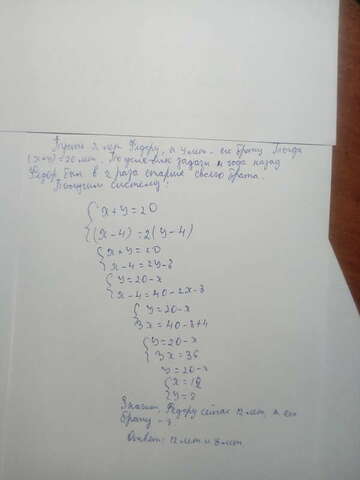 Пусть x лет Федору, а y лет - его брату. Тогда
(x+y)=20 лет. По условию задачи 4 года назад
Федор был в 2 раза старше своего брата.
Получим систему:
{x+y=20
{(x-4)=2(y-4)
{x+y=20
{x-4=2y-8
{y=20-x
{x-4=40-2x-8
{y=20-x
{3x=40-8+4
{y=20-x
{3x=36
y=20-x
{x=12
{y=8
Значит, Федору сейчас 12 лет, а его
брату - 8
Ответ: 12 лет и 8 лет